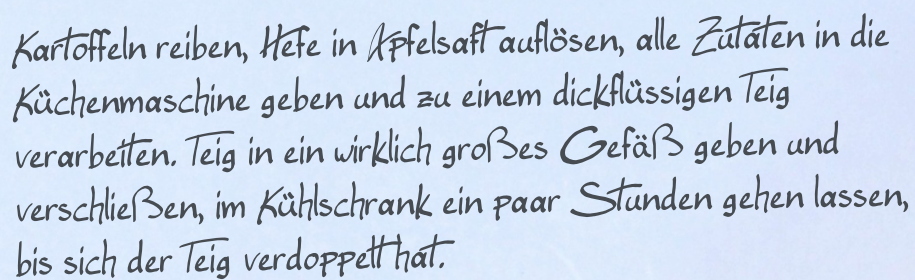 Kartoffeln reiben, Hefe in Apfelsaft auflösen, alle Zutaten in die
Küchenmaschine geben und zu einem dickflüssigen Teig
verarbeiten. Teig in ein wirklich großes Gefäß geben und
verschließen, im Kühlschrank ein paar Stunden gehen lassen,
bis sich der Teig verdoppelt hat.